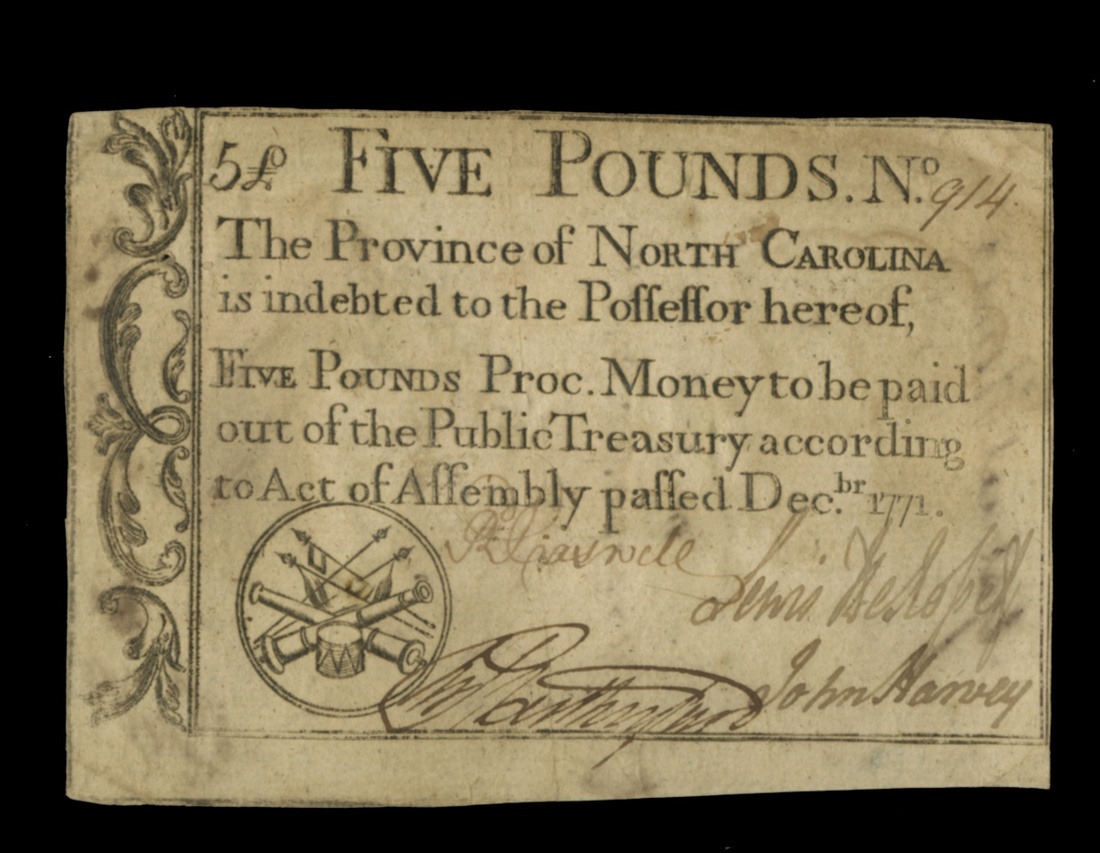 5£ FIVE POUNDS. No. 914.
The Province of NORTH CAROLINA
is indebted to the Poſſeſſor hereof,
FIVE POUNDS Proc. Money to be paid
out of the Public Treasury according
to Act of Aſſembly paſſed Dec.br 1771.
Rd Caswell
Lewis
John Harvey